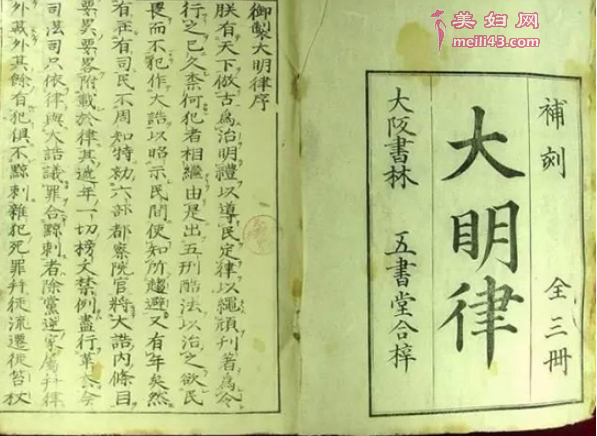 美妇网
meili43.com
補刻 全三冊
大明律
大阪書林 五書堂合梓
御製大明律序
朕有天下倣古爲治明禮以導民定律以繩頑刊著爲令
行之已久柰何犯者相繼由是出五刑酷法以治之欲民
畏而不犯作大誥以昭示民間使知所趨避又有年矣然
有在有司民不周知特勑六部都察院官將大誥内條目
要畧附載於律其逓年一切榜文禁例盡行革去今
司法司只依律與大誥議罪合黥刺者除黨逆家属幷律
外載外其餘有犯俱不黥刺雜犯死罪幷徒流遷徙笞杖